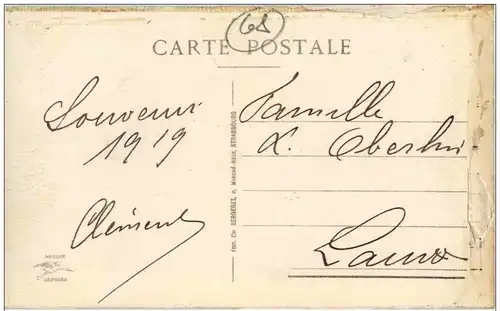 68
CARTE POSTALE
Souvenir
1919
Clément
Famille
L. Oberlin
Phot. Ch. BERGERET, STRASBOURG
MARQUE